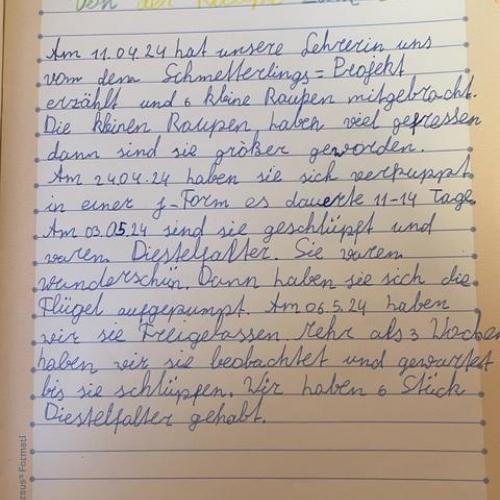 Von der Raupe zum
Am 11.04.24 hat unsere Lehrerin uns
vom dem Schmetterlings=Projekt
erzählt und 6 kleine Raupen mitgebracht.
Die kleinen Raupen haben viel gefressen
dann sind sie größer geworden.
Am 24.04.24 haben sie sich verpuppt
in einer j-Form es dauerte 11-14 Tage.
Am 03.05.24 sind sie geschlüpft und
waren Diestelfalter. Sie waren
wunderschün. Dann haben sie sich die
Flügel aufgepumpt. Am 06.5.24 haben
wir sie Freigelassen Mehr als 3 Wochen
haben wir sie beobachtet und gewartet
bis sie schlüpfen. Wir haben 6 Stück
Diestelfalter gehabt.